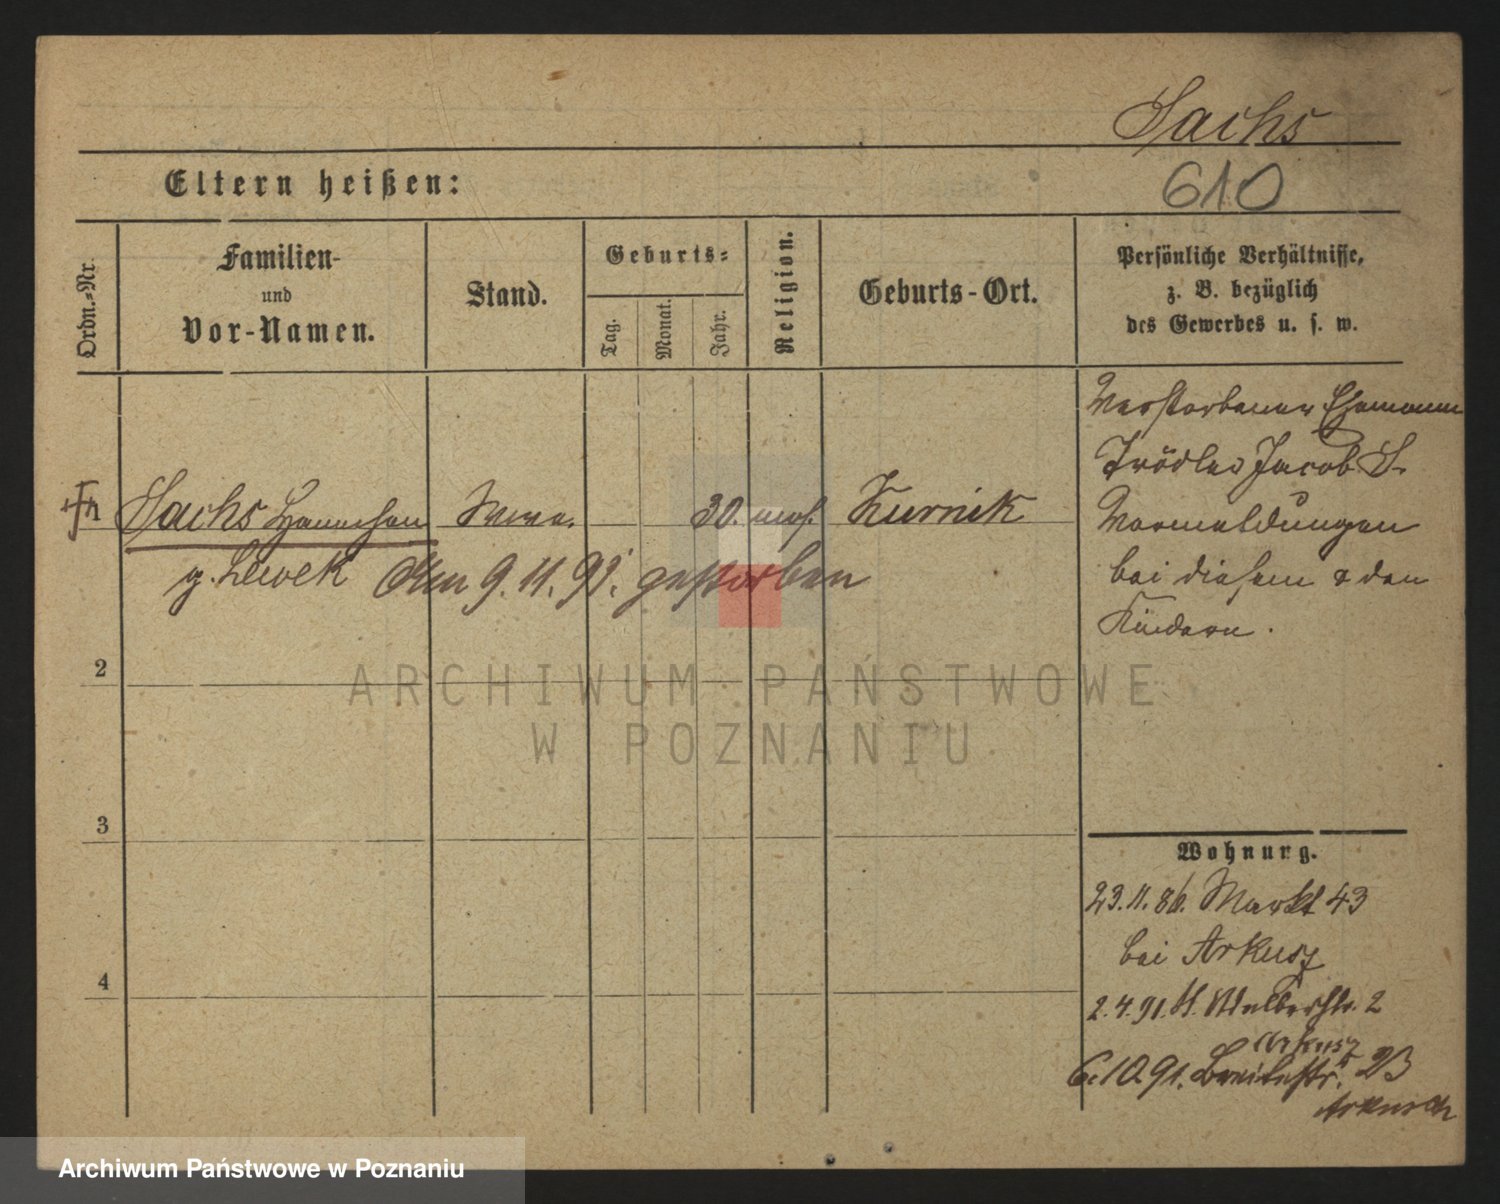 Sachs
Eltern heißen:
610
Ordn.-Nr.
Familien-
und
Vor-Namen.
Stand.
Geburts-
Tag.
Monat.
Jahr.
Religion.
Geburts-Ort.
Persönliche Verhältnisse,
z. B. bezüglich
des Gewerbes u. s. w.
Verstorbener Ehemann
Trödler Jacob S.
Sachs Hannchen Wwe. 30. mos. Kurnik
Vormeldungen
g. Lewek Am 9. 11. 91. gestorben
bei diesem & den
Kindern.
2
3
4
Wohnung.
23.11.86. Markt 43
bei Arkusz
2.4.91. Kl. 2
Arkusz
6.10.91. Breitestr. 23
Arkusch
ARCHIWUM PAŃSTWOWE
W POZNANIU
Archiwum Państwowe w Poznaniu